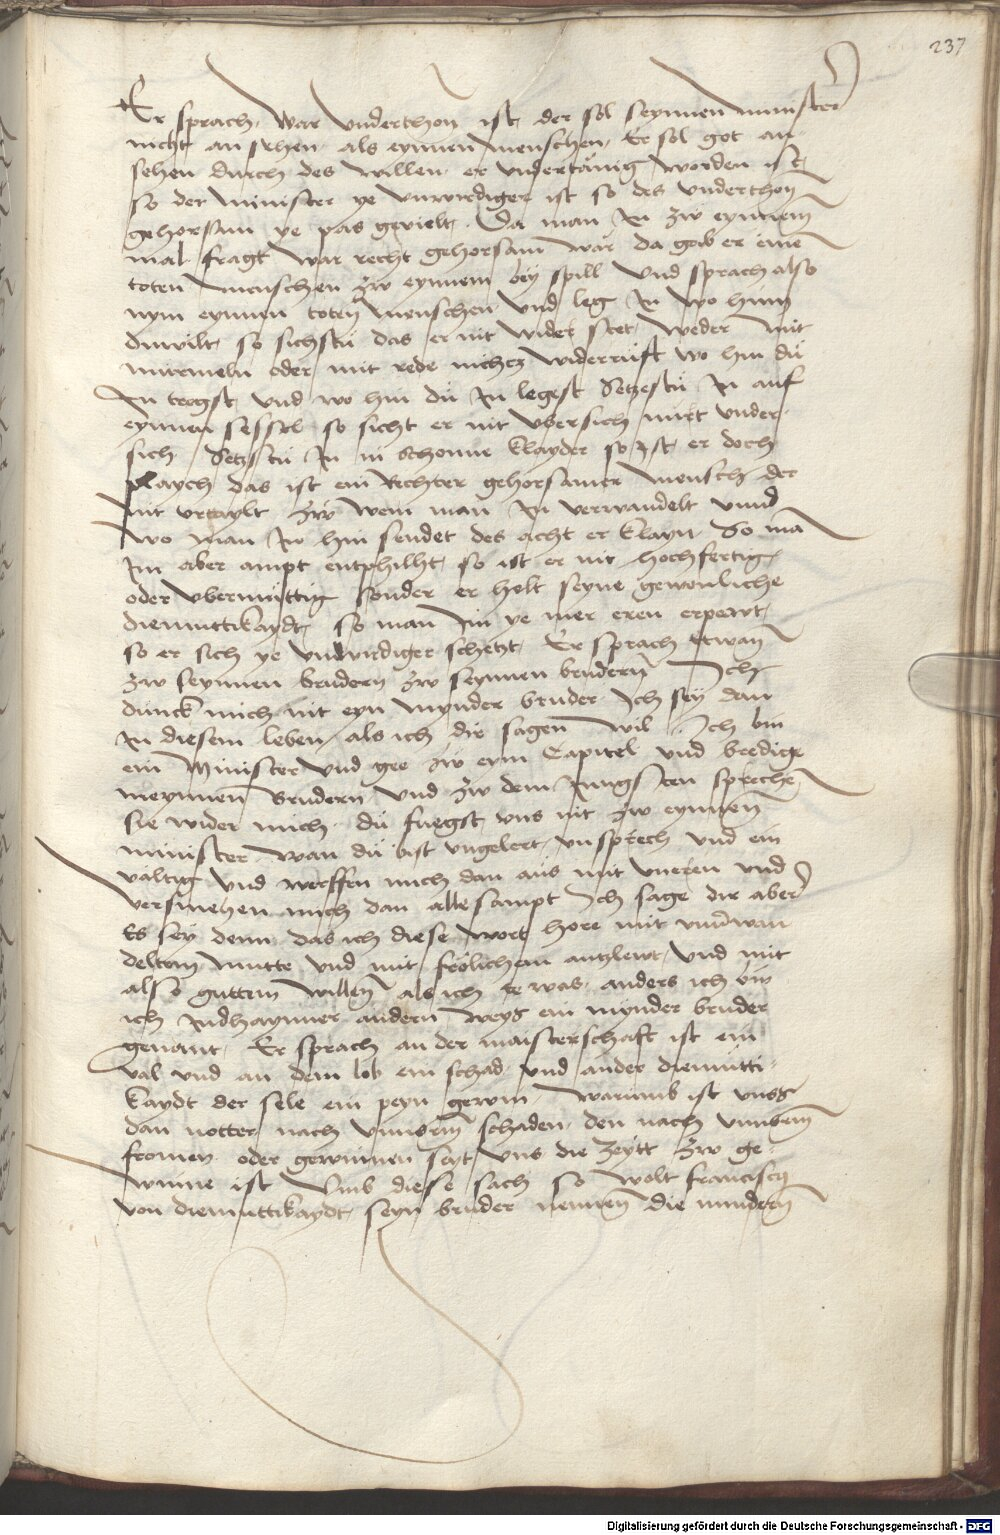 237
Er sprach war underthon ist der sol seynnen minister
nicht an sehen als eynnen menschen Er sol got an
sehen durch des willen er undertänig worden ist
so der minister ye unwirdiger ist so des underthon
gehorsam ye pas gevelt Da man In zw eynnem
mal fragt war recht gehorsam wär da gab er einen
toten menschen zw eynnem bey spill und sprach also
nym eynnen toten menschen und leg In wo hinn
duwilt so sichstu das er nit wider stet weder mit
murmeln oder mit rede nichtz widerruft wo hin du
In tregst und wo hin du In legest Setzestu In auf
eynnen sessel so sicht er nit ubersich nurt under
sich Setzstu In in schonne klayder so ist er doch
playch das ist ein Rechter gehorsamer mensch der
nit urtaylt zw wem man In verwandelt unnd
wo man In hin sendet des acht er klayn So man
Im aber ampt entphilht so ist er nit hochfertig
oder ubermüttig sonder er helt seyne gewonliche
diemuttikaydt so man Im ye mer eren erpewt
so er sich ye unwirdiger schetzt Er sprach etwan
zw seynnen brudern zw seynnen brudern Ich
dunck mich nit eyn mynder bruder Ich sey dan
In diesem leben als ich dir sagen wil Ich bin
ein Minister und gee zw eym Capitel und bredige
meynnen brudern und zw dem Jungsten sprechen
sie wider mich du fuegst uns nit zw eynnem
minister wan du bist ungelert unsprech und ein
valtig und werffen mich dan aus mit uneren und
versmehen mich dan allesampt Ich sage dir aber
Es sey denn das ich diese wort hore mit unverwan
deltem mutte und mit frölichem antzlewt und mit
also guttem willen als ich ye was anders ich bin
ich Indhaynner andern weys ein mynder bruder
genant Er sprach an der maisterschaft ist ein
val und an dem lob ein schad und ander diemütti
kaydt der sele ein peyn gewin Warumb ist unsz
dan notter nach unnserm schaden den nach unnserm
fromen oder gewinnen seyt uns die zeytt zw ge
winne ist Umb diese sach so wolt franciscus
von diemuttikaydt seyn bruder nennen die mindern
Digitalisierung gefördert durch die Deutsche Forschungsgemeinschaft - DFG